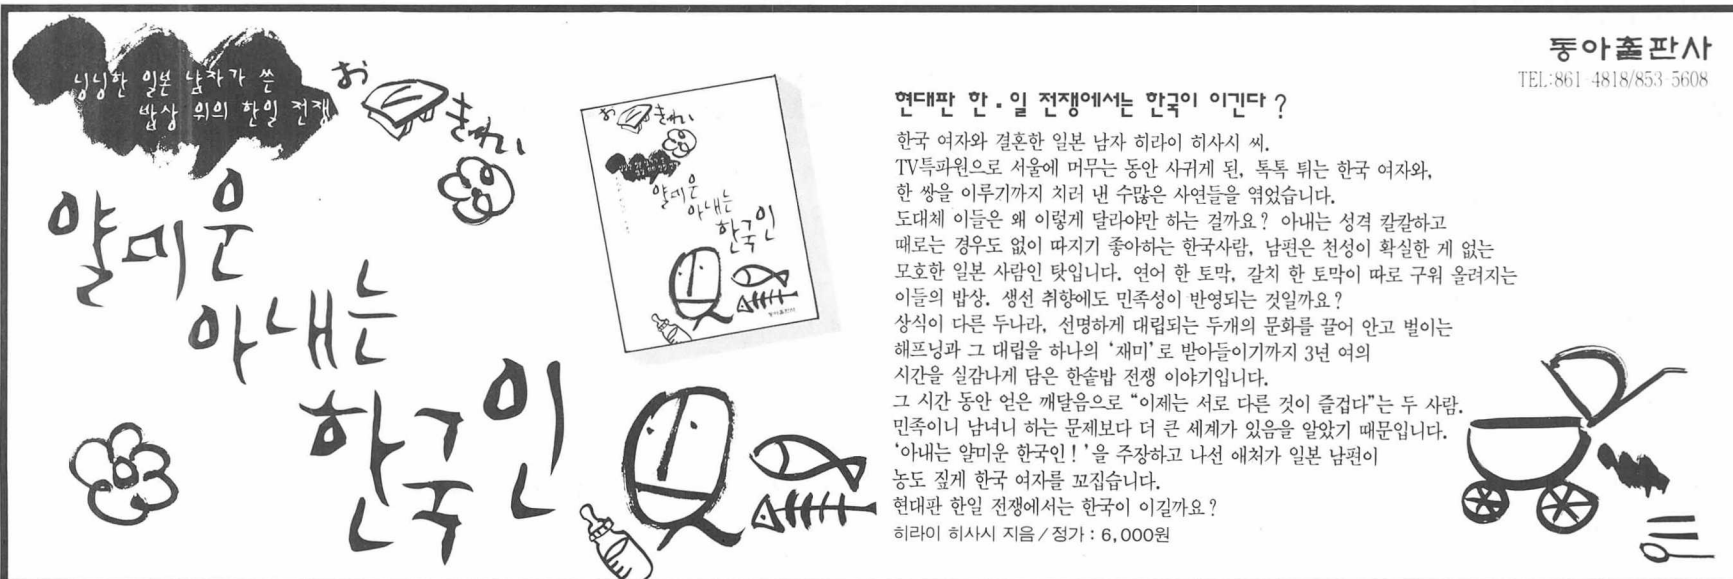 닝닝한 일본 남자가 쓴
밥상 위의 한일 전쟁
얄미운
아내는
한국인
얄미운
아내는
한국인
동아출판사
동아출판사
TEL:861-4818/853-5608
현대판 한·일 전쟁에서는 한국이 이긴다?
한국 여자와 결혼한 일본 남자 히라이 히사시 씨.
TV특파원으로 서울에 머무는 동안 사귀게 된, 톡톡 튀는 한국 여자와,
한 쌍을 이루기까지 치러 낸 수많은 사연들을 엮었습니다.
도대체 이들은 왜 이렇게 달라야만 하는 걸까요? 아내는 성격 칼칼하고
때로는 경우도 없이 따지기 좋아하는 한국사람, 남편은 천성이 확실한 게 없는
모호한 일본 사람인 탓입니다. 연어 한 토막, 갈치 한 토막이 따로 구워 올려지는
이들의 밥상. 생선 취향에도 민족성이 반영되는 것일까요?
상식이 다른 두나라, 선명하게 대립되는 두개의 문화를 끌어 안고 벌이는
해프닝과 그 대립을 하나의 ‘재미’로 받아들이기까지 3년 여의
시간을 실감나게 담은 한솥밥 전쟁 이야기입니다.
그 시간 동안 얻은 깨달음으로 “이제는 서로 다른 것이 즐겁다”는 두 사람.
민족이니 남녀니 하는 문제보다 더 큰 세계가 있음을 알았기 때문입니다.
‘아내는 얄미운 한국인!’을 주장하고 나선 애처가 일본 남편이
농도 짙게 한국 여자를 꼬집습니다.
현대판 한일 전쟁에서는 한국이 이길까요?
히라이 히사시 지음/정가 : 6,000원